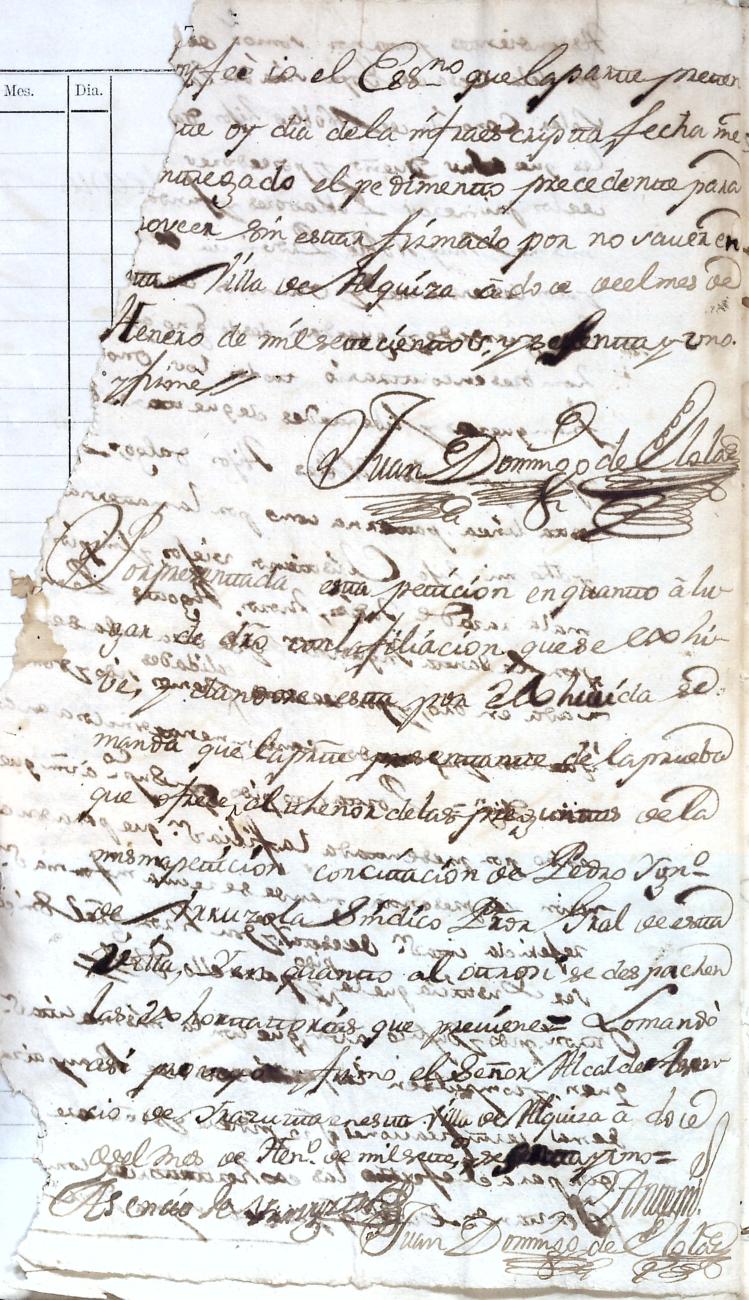 Mes. Dia.
fee io el Ess.no que la parte presen
te oy dia de la infraescripta fecha me
ntregado el pedimento precedente para
roveer sin estar firmado por no saver en
ta Villa de Alquiza â doce de el mes de
Henero de mil setecientos, y sesenta y uno.
y firmé
Juan Domingo de
Por presentada esta peticion en quanto â lu
gar de dro con la filiacion que se exhi
be, y dandose esta por exhivida se
manda que la prte presentante dè la prueba
que ofrece, al thenor de las preguntas de la
misma peticion con citacion de Pedro Ign.o
de Yrruzola Sindico Pror Gral de esta
Villa, Y en quanto al otrosi se despachen
las exhortatorias que previene= Lo mandò
asi proveyó y firmo el Señor Alcalde
de en esta Villa de Alquiza â doce
de el mes de Hen.o de mil setec.s y sesenta y uno=
Asencio de
Antemi
Juan Domingo de